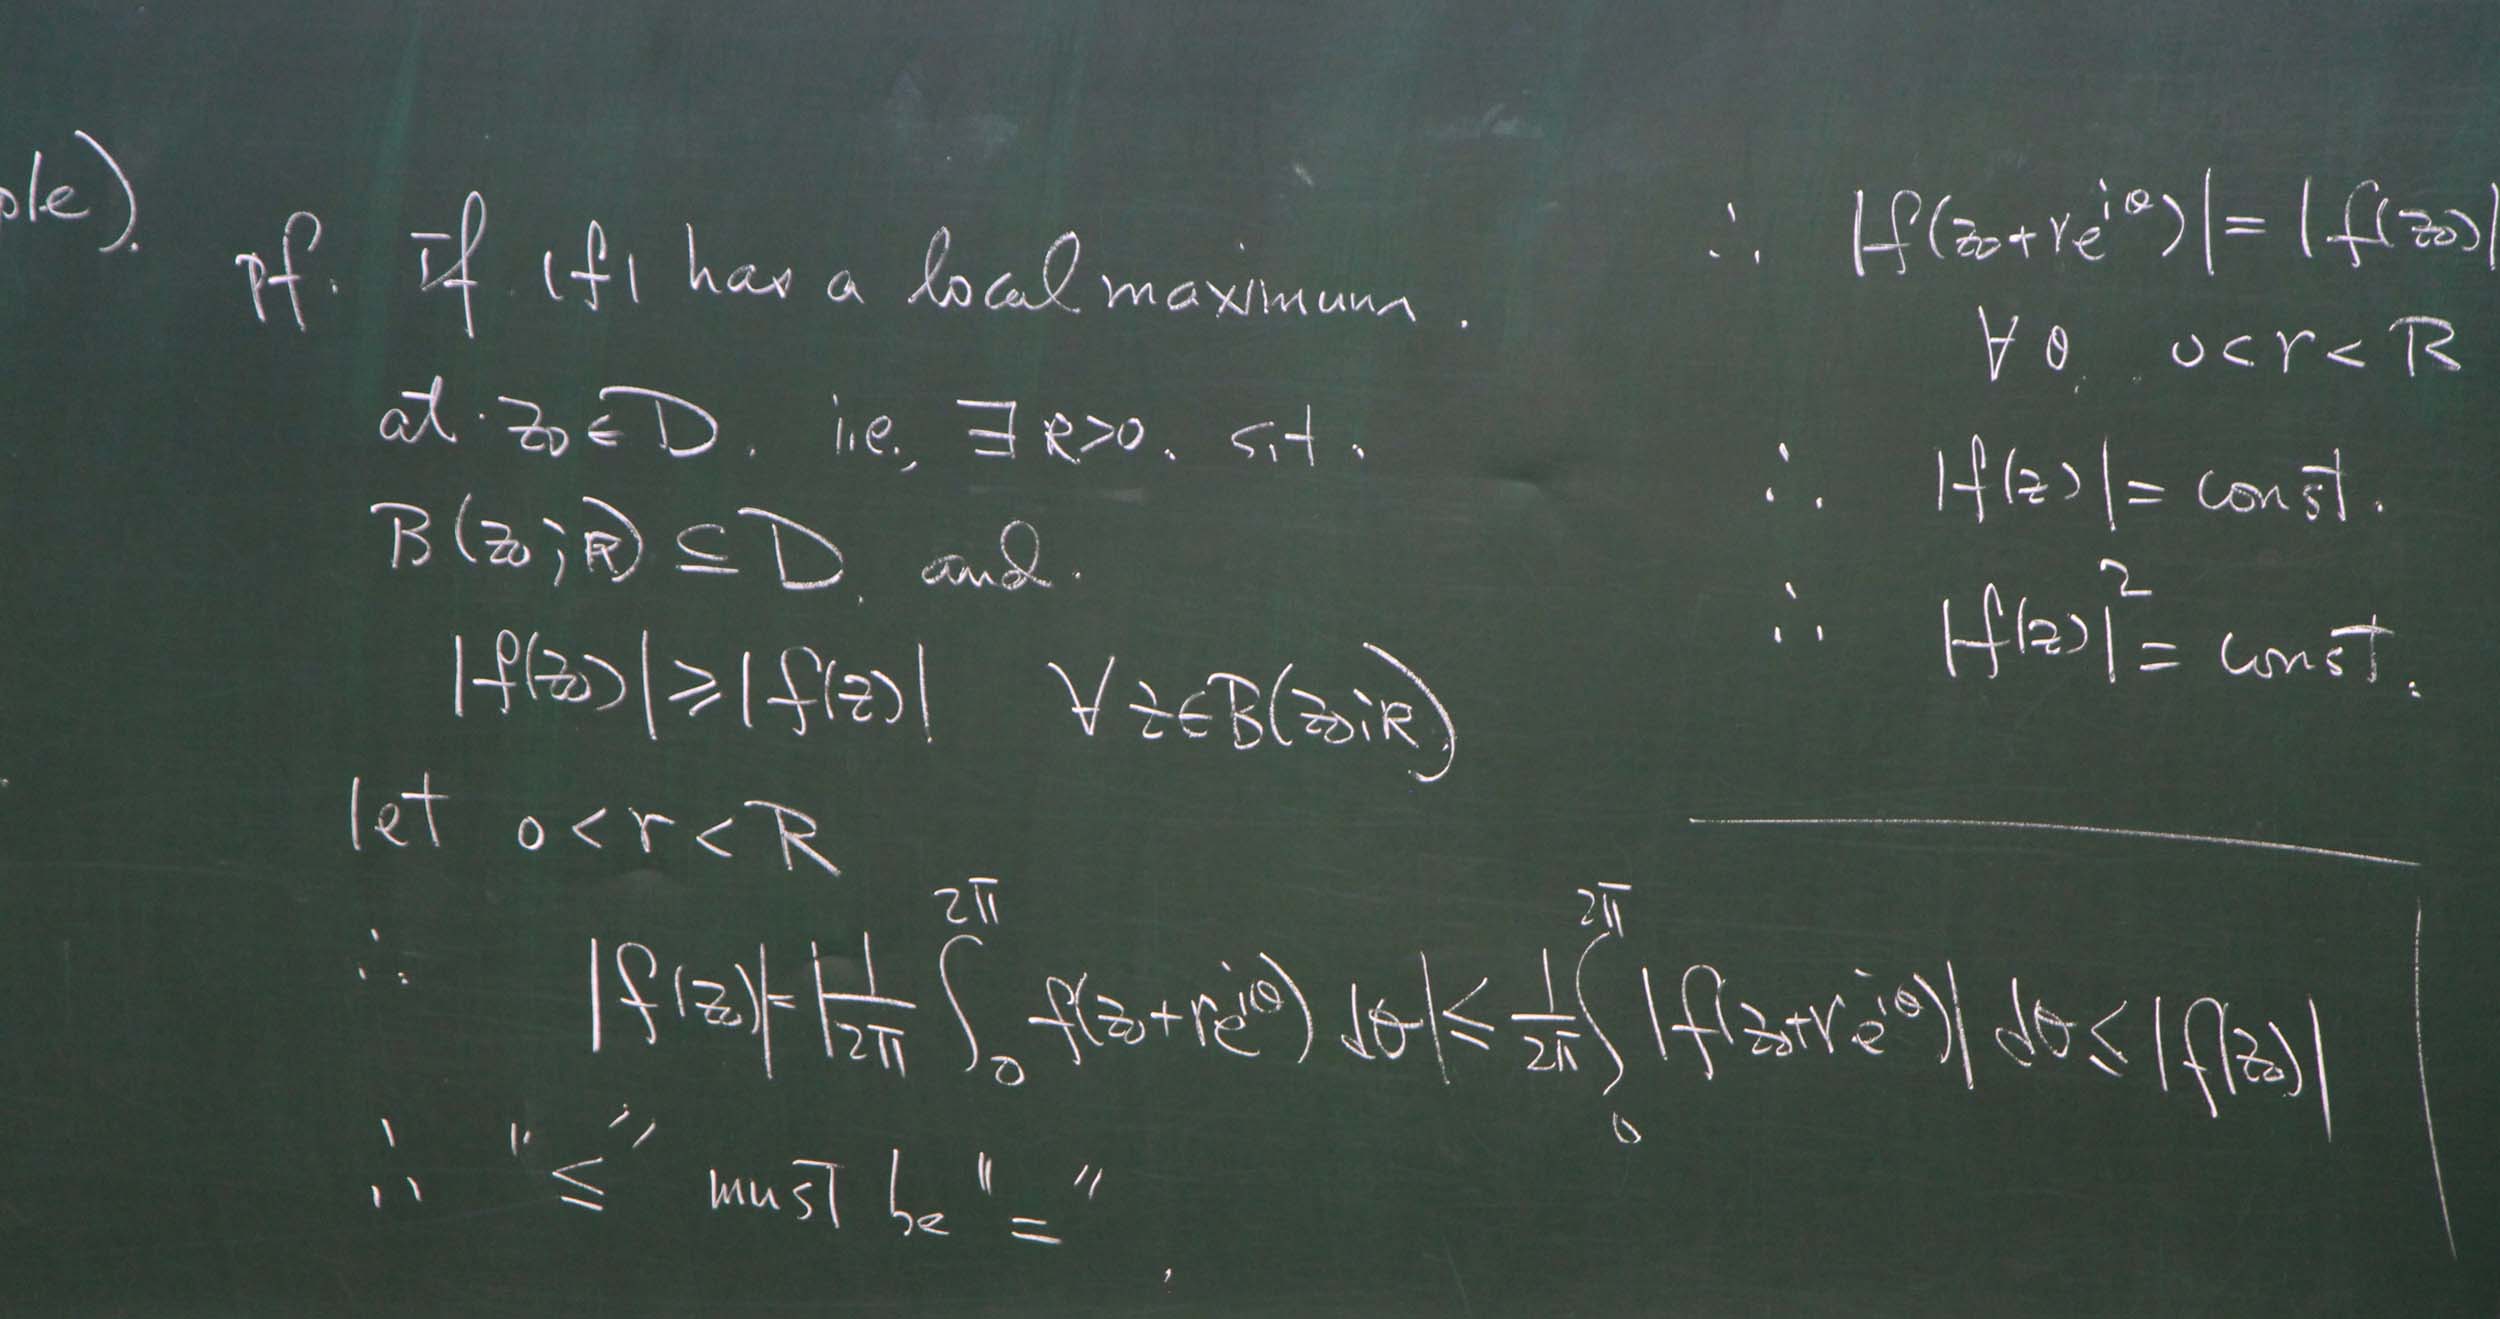 pf. If |f| has a local maximum.
at z₀∈D. i.e., ∃ R>0. s.t.
B(z₀;R) ⊆ D, and.
|f(z₀)| ≥ |f(z)| ∀ z∈B(z₀;R)
let 0<r<R
∴ |f(z₀)| = |1/2π ∫₀^2π f(z₀+re^iθ) dθ| ≤ 1/2π ∫₀^2π |f(z₀+re^iθ)| dθ ≤ |f(z₀)|
∴ "≤" must be "="
∴ |f(z₀+re^iθ)| = |f(z₀)|
∀ θ, 0<r<R
∴ |f(z)| = const.
∴ |f(z)|² = const.